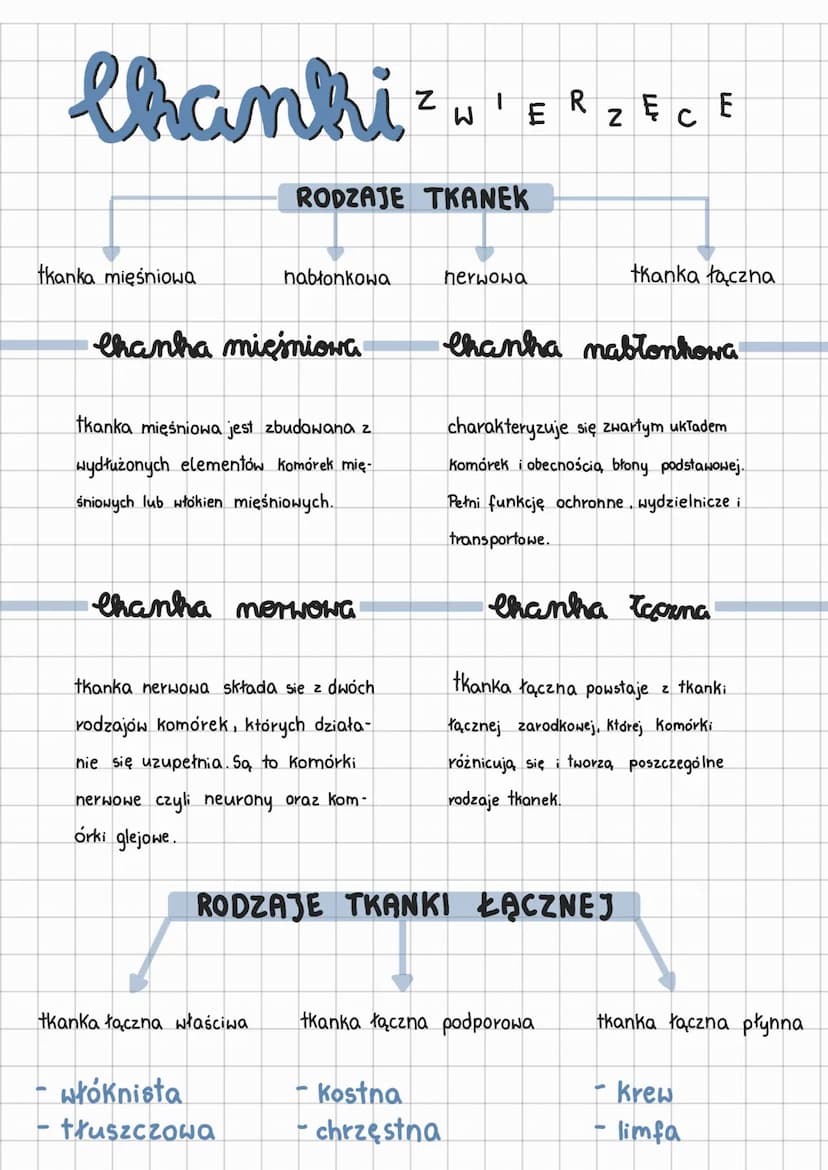 tkanki ZWIERZĘCE
RODZAJE TKANEK
tkanka mięśniowa nabłonkowa nerwowa tkanka łączna
tkanka mięśniowa
tkanka mięśniowa jest zbudowana z
wydłużonych elementów komórek mię-
śniowych lub włókien mięśniowych.
tkanka nabłonkowa
charakteryzuje się zwartym układem
komórek i obecnością błony podstawowej.
Pełni funkcję ochronne, wydzielnicze i
transportowe.
tkanka nerwowa
tkanka nerwowa składa sie z dwóch
rodzajów komórek, których działa-
nie się uzupełnia. Są to komórki
nerwowe czyli neurony oraz kom-
órki glejowe.
tkanka łączna
tkanka łączna powstaje z tkanki
łącznej zarodkowej, której komórki
różnicują się i tworzą poszczególne
rodzaje tkanek.
RODZAJE TKANKI ŁĄCZNEJ
tkanka łączna właściwa
- włóknista
- tłuszczowa
tkanka łączna podporowa
- kostna
- chrzęstna
tkanka łączna płynna
- krew
- limfa